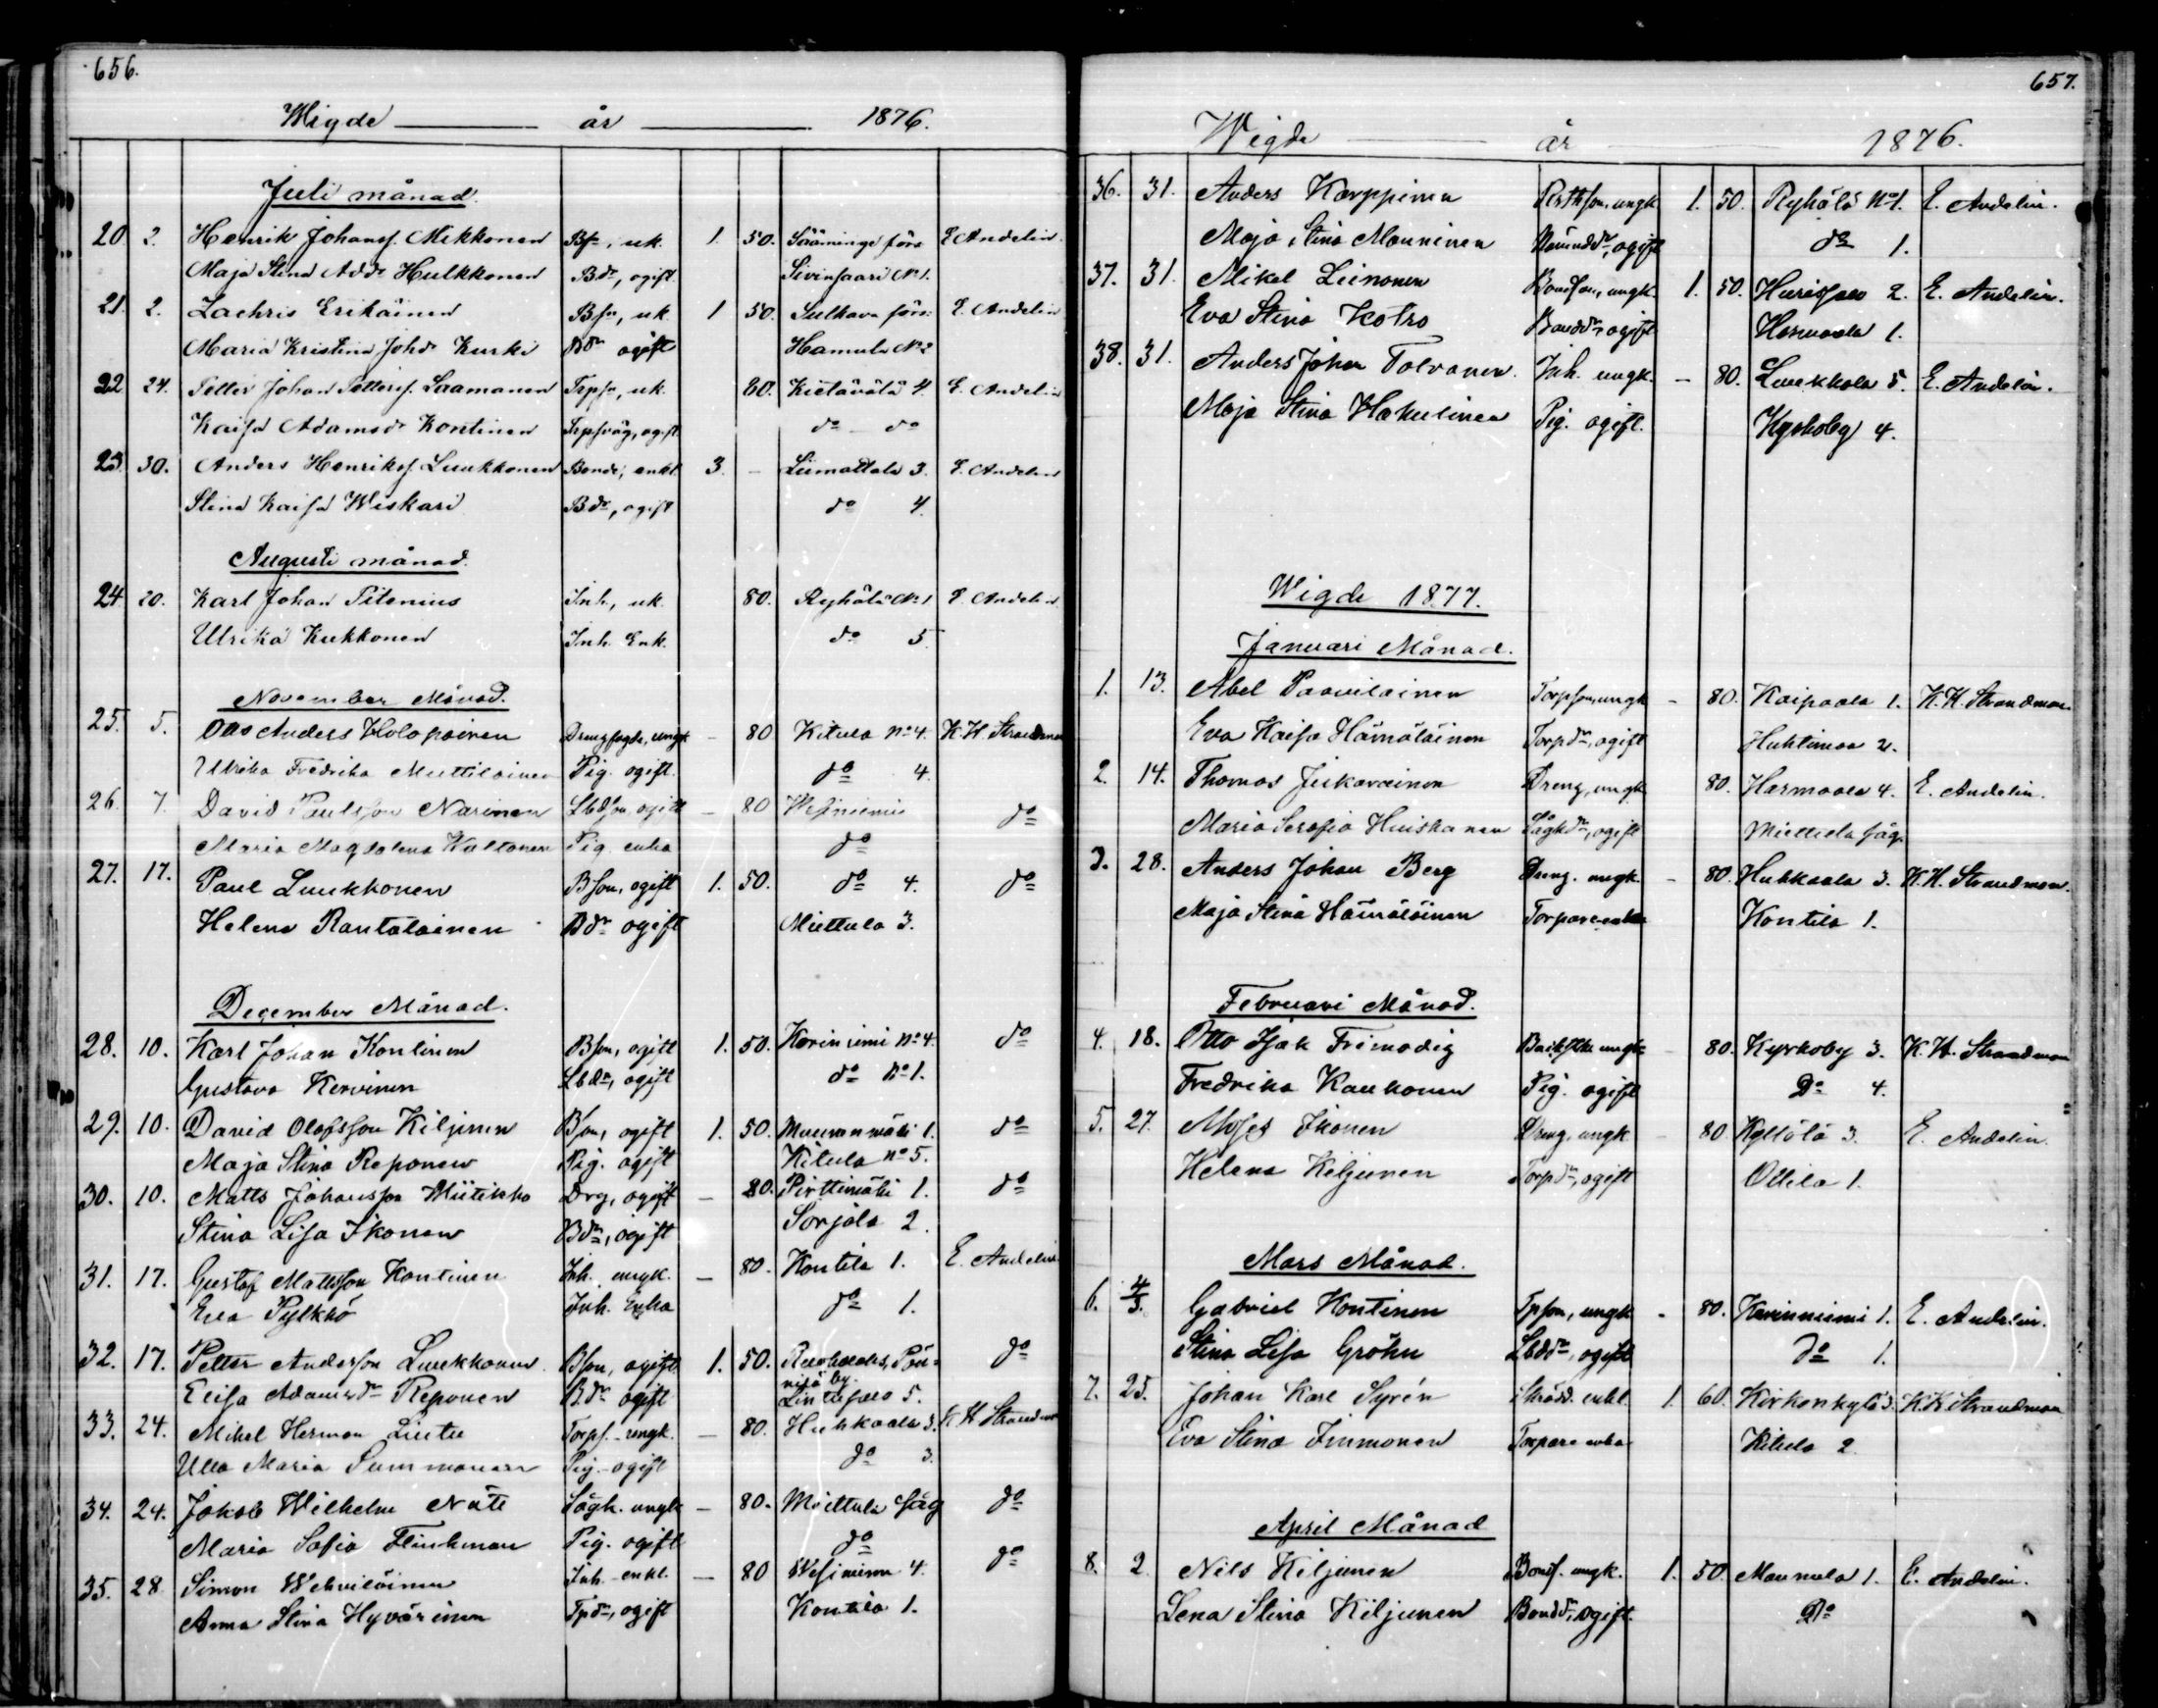 656.
Wigde år 1876.
Juli månad.
20. 2. Henrik Johansf. Mikkonen Bfn, uk. 1. 50. Sääminge förs E. Andelin
Maja Stina Add: Hulkkonen Bdr, ogift. Sivinsaari No 1.
21. 2. Zachris Erikäinen Bfn, uk. 1 50. Sulkava förs: E. Andelin
Maria Kristina Johdr Kurki Bdr ogift Hamula No 2
22 24. Petter Johan Pettersf. Laamanen Trpfn, uk. 80. Kietävälä 4. E. Andelin
Kaisa Adamsdr Kontinen ogift do do
23. 30. Anders Henriksf. Luukkonen Bonde, enkl. 3. – Liimattala 3. E. Andelin
Stina Kaisa Wiskari Bdr, ogift do 4.
Augusti månad.
24 20. Karl Johan Pitenius Inh, uk. 80. Ryhälä No 1 E. Andelin
Ulrika Kukkonen Inh. Enk. do 5.
November Månad.
25. 5. Otto Anders Holopainen ungk – 80 Kitula No 4. K. H. Strandman
Ulrika Fredrika Muttilainen Pig. ogift. do 4.
26. 7. David Paulsson Narinen ogift – 80 Wesiniemi do
Maria Magdalena Kaltonen Pig. enka do
27. 17. Paul Luukkonen Bson, ogift 1. 50. do 4. do
Helena Rantalainen Bdr ogift Miettula 3.
December Månad.
28. 10. Karl Johan Kontinen Bson, ogift 1. 50. No 4. do
Gustava Kervinen Lbdr, ogift do No 1.
29. 10. David Olofsson Kiljunen Bson, ogift 1. 50. 1. do
Maja Stina Reponen Pig. ogift Kitula No 5.
30. 10. Matts Johansson Miitikko Drg, ogift – 80. Pirttimäki 1. do
Stina Lisa Ikonen Bdr, ogift Sorjala 2.
31. 17. Gustaf Mattsson Kontinen Inh. ungk. – 80. Kontila 1. E. Andelin
Eva Pylkkö Inh. Enka do 1.
32. 17. Petter Andersson Luukkonen Bson, ogift 1. 50. do
by.
Elisa Adamsdr Reponen Bdr ogift 5.
33. 24. Mikel Herman Lintu Torps. ungk. – 80. Huhkaala 3. K. H. Strandman
Ulla Maria Summanen Pig. ogift do 3.
34. 24. Jakob Wilhelm Sågk. ungk – 80. Miettula såg do
Maria Sofia Flinkman Pig. ogift do
35. 28. Simon Wehviläinen Inh. enkl. – 80 4. do
Anna Stina Hyvärinen Tpdr, ogift Kontila 1.
657.
Wigde år 1876.
36. 31. Anders Karppinen ungk 1. 50. Ryhälä No 1. E. Andelin.
Maja Stina Manninen ogift do 1.
37. 31. Mikel Leinonen Bondson, ungk. 1. 50. 2. E. Andelin.
Eva Stina Kotro Bonddr, ogift 1.
38. 31. Anders Johan Tolvanen Inh. ungk. – 80. Luukkola 5. E. Andelin.
Maja Stina Hakulinen Pig. ogift. Kyrkoby 4.
Wigde 1877.
Januari Månad.
1. 13. Abel Paavilainen Torpson, ungk – 80. Kaipaala 1. K. H. Strandman.
Eva Kaisa Hämäläinen Torpdr, ogift Huhtimaa 2.
2. 14. Thomas Jukarainen Dreng, ungk 80. Harmaala 4. E. Andelin.
Maria Serafia Huiskonen Sågkdr, ogift Miettula såg.
3. 28. Anders Johan Berg Dreng. ungk. – 80. Huhkaala 3. K. H. Strandman.
Maja Stina Hämäläinen Torpare enka Kontila 1.
Februari Månad.
4. 18. Otto Isak Frimodig ungk – 80. Kyrkoby 3. K. H. Strandman
Fredrika Kaukonen Pig. ogift Do 4.
5. 27. Moses Ikonen Dreng, ungk – 80. Kyllölä 3. E. Andelin.
Helena Kiljunen Torpdr, ogift Ollila 1.
Mars Månad.
6. 4/3. Gabriel Kontinen Tpson, ungk – 80. Karinniemi 1. E. Andelin.
Stina Lisa Gröhn Lbddr, ogift do 1.
7. 25. Johan Karl Syrén Skrädd. enkl. 1. 60. Kirkonkylä 3. K. H. Strandman
Eva Stina Immonen Torpare enka Kitula 2
April Månad
8. 2. Nils Kiljunen Bonds. ungk. 1. 50. Maunula 1. E. Andelin.
Lena Stina Kiljunen Bonddr, ogift Do